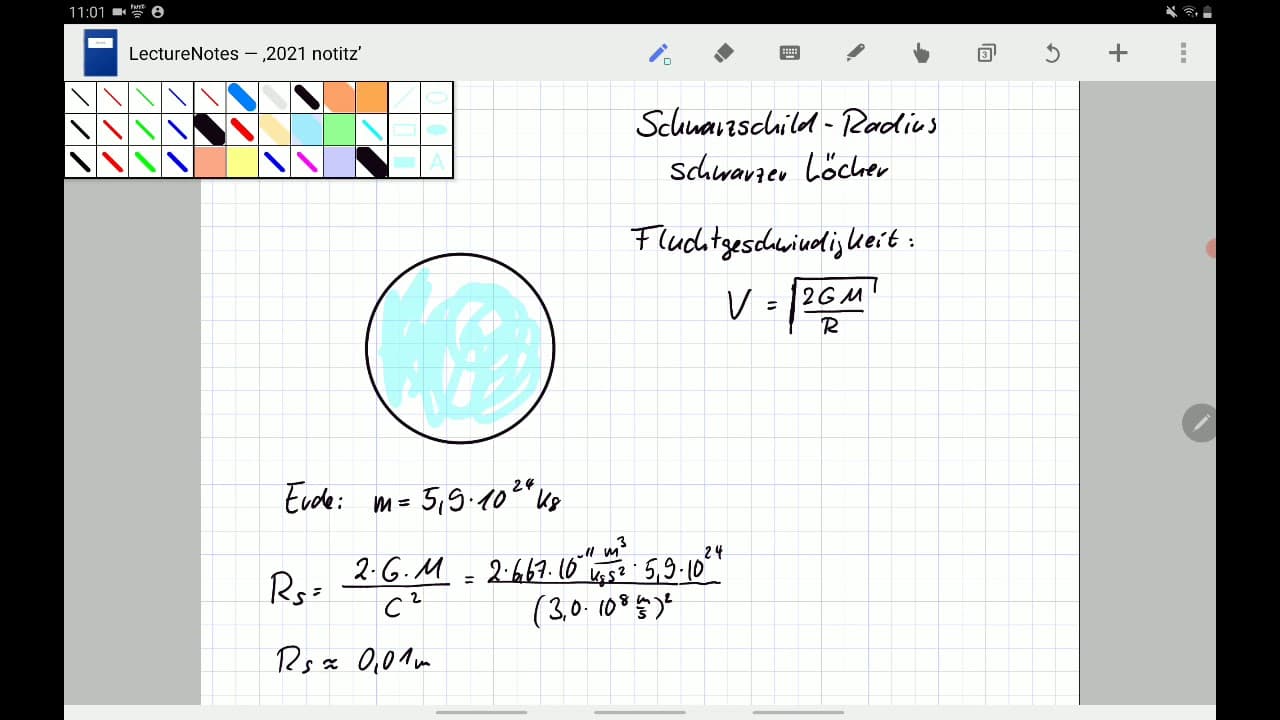 11:01
LectureNotes — ‚2021 notitz’
3
A
Schwarzschild - Radius
schwarzer Löcher
Fluchtgeschwindigkeit:
V = √(2GM/R)
Erde: m = 5,9·10²⁴ kg
Rs = 2·G·M / C² = 2·6,67·10⁻¹¹ m³/kgs² · 5,9·10²⁴ / (3,0·10⁸ m/s)²
Rs ≈ 0,01m